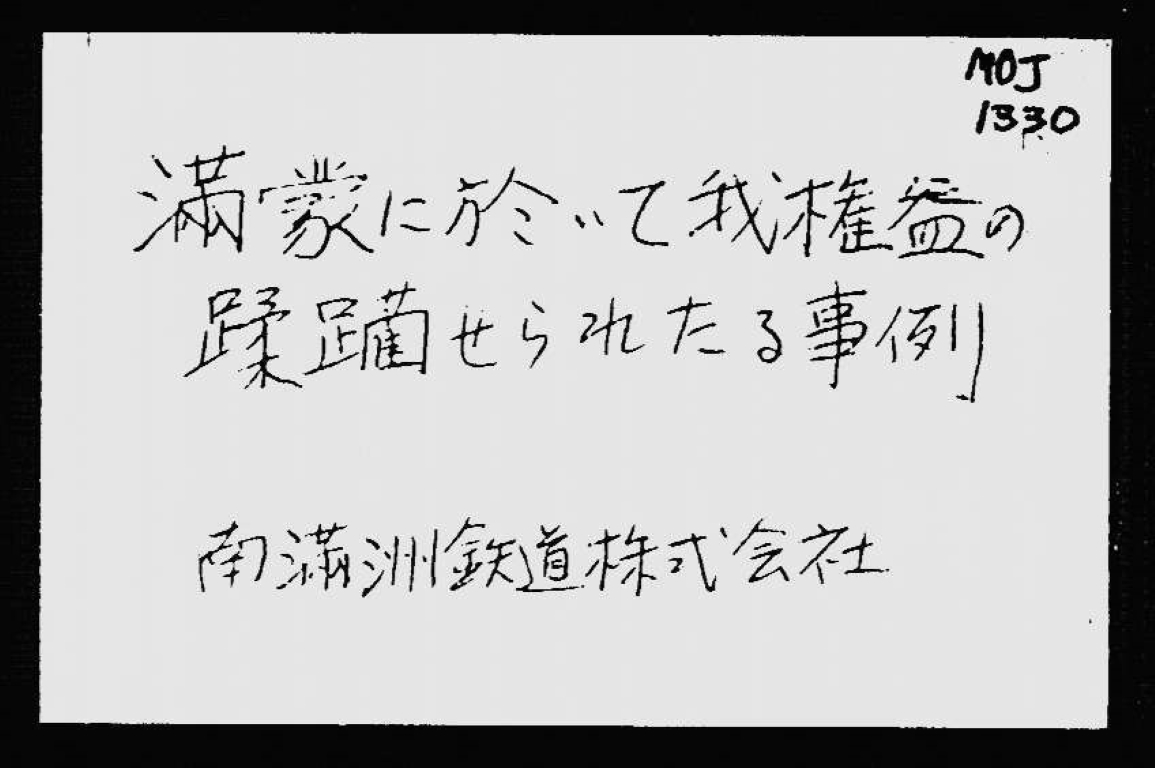 MOJ
1330
満蒙に於いて我権益の
蹂躙せられたる事例
南満洲鉄道株式会社